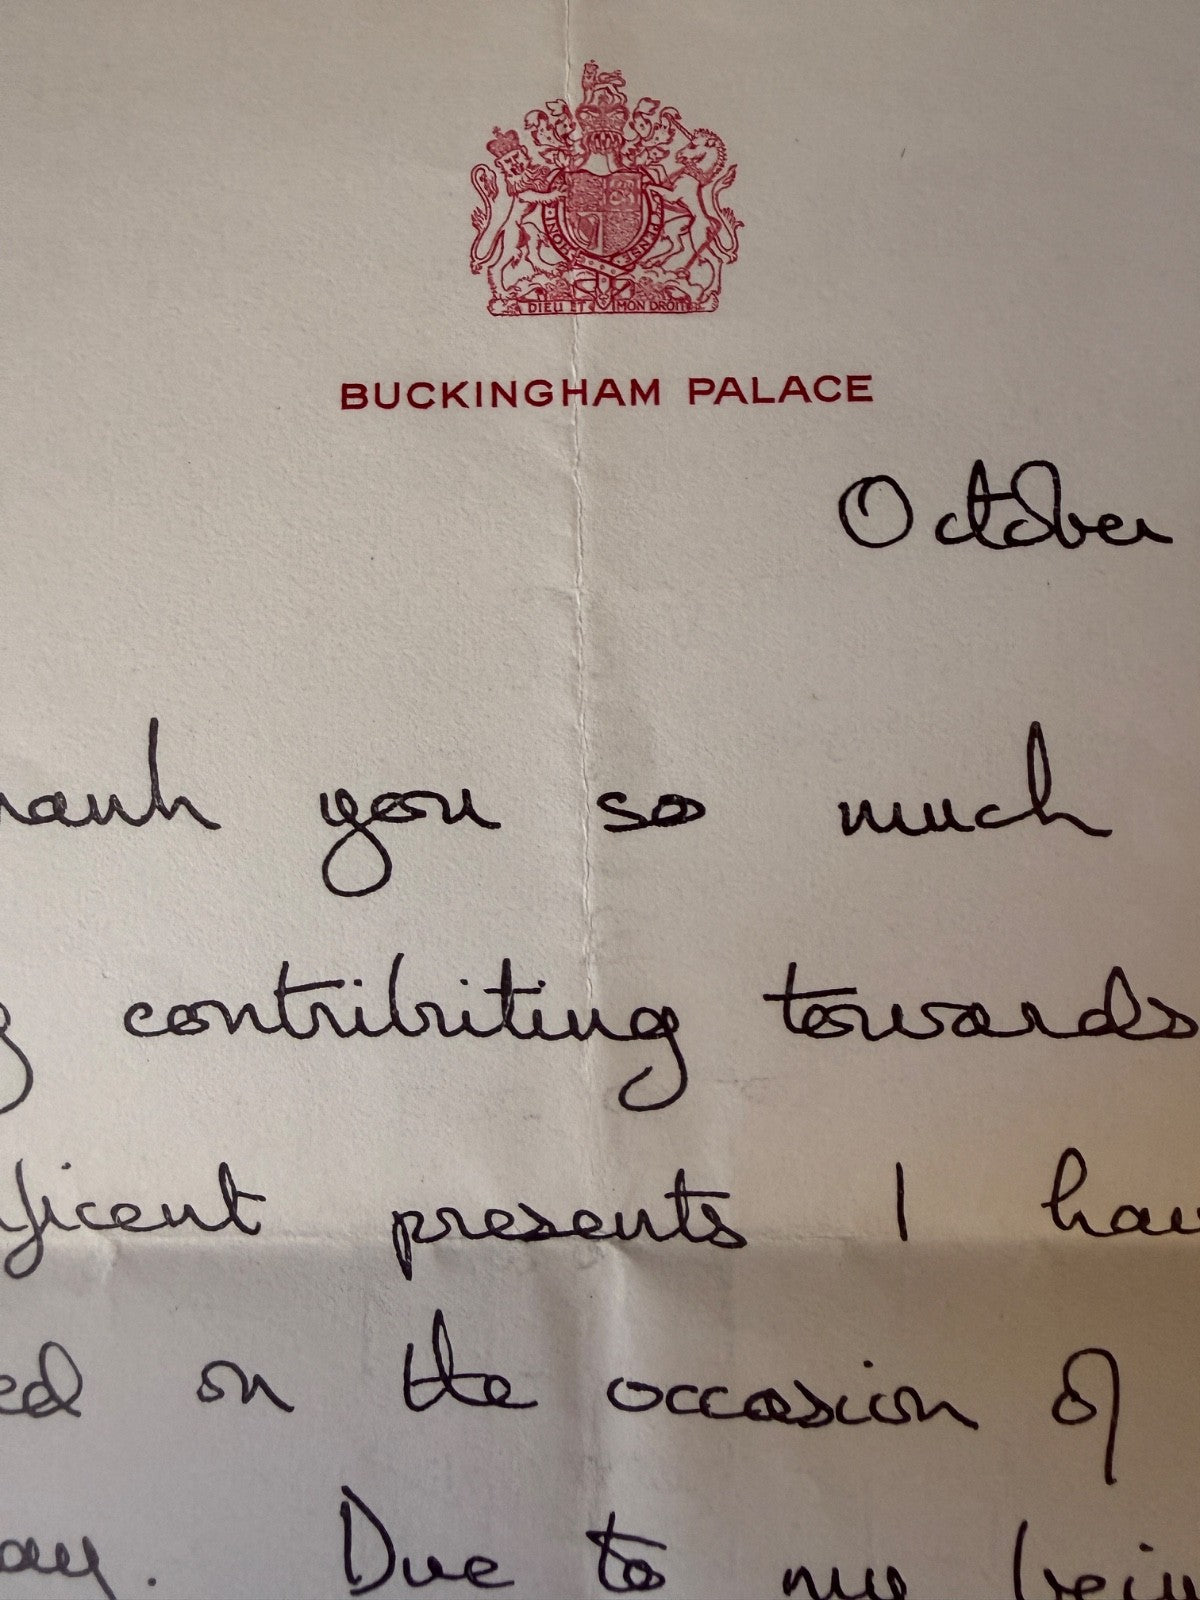 DIEU ET MON DROIT
BUCKINGHAM PALACE
October
hank you so much
contribiting towards
ficent presents I hav
ed on the occasion of
ay. Due to my bein